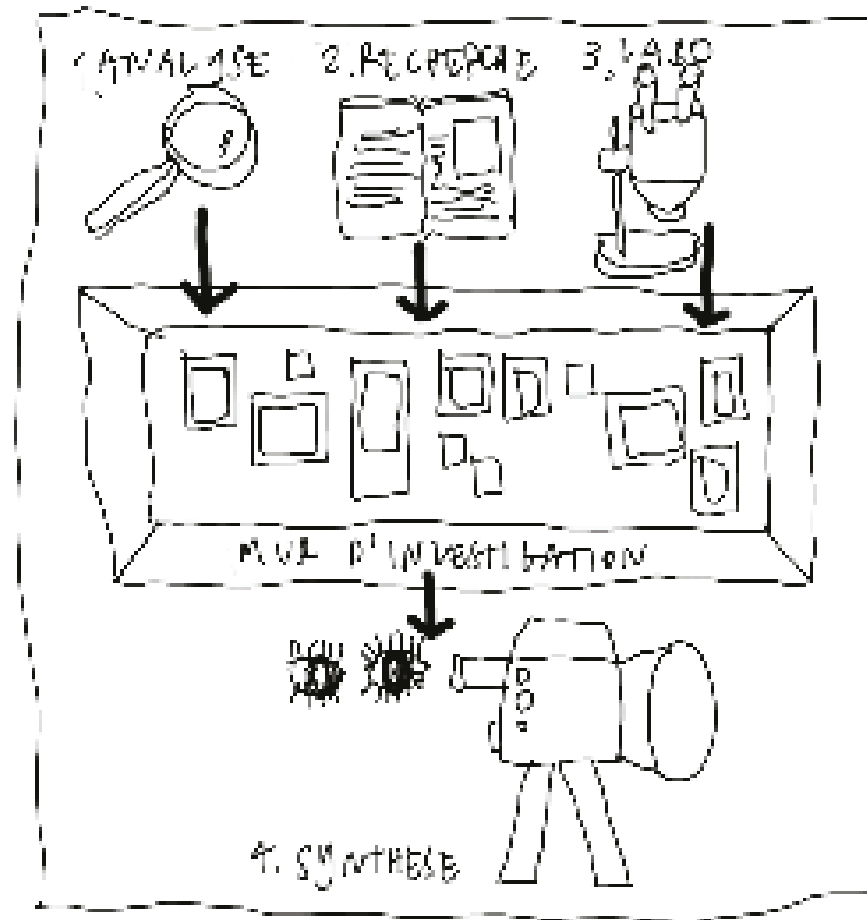 1. ANALYSE
2. RECHERCHE
3. LABO
MUR D'INVESTIGATION
4. SYNTHESE